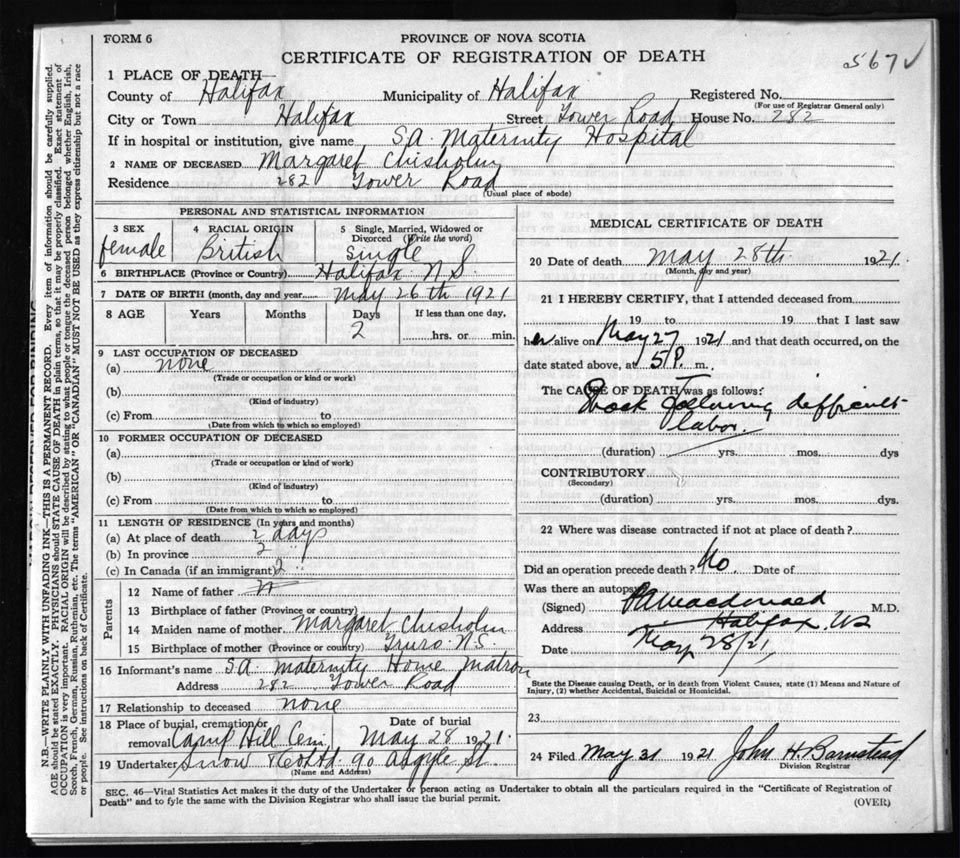 FORM 6
PROVINCE OF NOVA SCOTIA
CERTIFICATE OF REGISTRATION OF DEATH
567
1 PLACE OF DEATH—
County of Halifax Municipality of Halifax Registered No.
(For use of Registrar General only)
City or Town Halifax Street Tower Road House No. 282
If in hospital or institution, give name S.A. Maternity Hospital
2 NAME OF DECEASED Margaret Chisholm
Residence 282 Tower Road
(Usual place of abode)
PERSONAL AND STATISTICAL INFORMATION
3 SEX female
4 RACIAL ORIGIN British
5 Single, Married, Widowed or Divorced (Write the word) single
6 BIRTHPLACE (Province or Country) Halifax N S.
7 DATE OF BIRTH (month, day and year May 26th 1921
8 AGE Years Months Days 2 If less than one day, hrs. or min.
9 LAST OCCUPATION OF DECEASED
(a) none
(Trade or occupation or kind or work)
(b)
(Kind of industry)
(c) From to
(Date from which to which so employed)
10 FORMER OCCUPATION OF DECEASED
(a)
(Trade or occupation or kind of work)
(b)
(Kind of industry)
(c) From to
(Date from which to which so employed)
11 LENGTH OF RESIDENCE (In years and months)
(a) At place of death 2 days
(b) In province 2 "
(c) In Canada (if an immigrant) 2 "
Parents
12 Name of father
13 Birthplace of father (Province or country)
14 Maiden name of mother Margaret Chisholm
15 Birthplace of mother (Province or country) Truro N S
16 Informant's name S.A. Maternity Home Matron
Address 282 Tower Road
17 Relationship to deceased none
18 Place of burial, cremation or removal Camp Hill Cem. Date of burial May 28 1921.
19 Undertaker Snow & Co Ltd. 90 Argyle St.
(Name and Address)
MEDICAL CERTIFICATE OF DEATH
20 Date of death May 28th 1921.
(Month, day and year)
21 I HEREBY CERTIFY, that I attended deceased from
19 to 19 that I last saw
her alive on May 27 1921 and that death occurred, on the
date stated above, at 5 P. m.
The CAUSE OF DEATH was as follows:
Shock following difficult
labor.
(duration) yrs. mos. dys
CONTRIBUTORY
(Secondary)
(duration) yrs. mos. dys.
22 Where was disease contracted if not at place of death?
Did an operation precede death? No. Date of
Was there an autopsy
(Signed) Macdonald M.D.
Address Halifax, NS
Date May 28/21,
State the Disease causing Death, or in death from Violent Causes, state (1) Means and Nature of
Injury, (2) whether Accidental, Suicidal or Homicidal.
23
24 Filed May 31 1921 John H. Barnstead
Division Registrar
SEC. 46—Vital Statistics Act makes it the duty of the Undertaker or person acting as Undertaker to obtain all the particulars required in the "Certificate of Registration of
Death" and to fyle the same with the Division Registrar who shall issue the burial permit.
(OVER)
N.B.—WRITE PLAINLY WITH UNFADING INK—THIS IS A PERMANENT RECORD. Every item of information should be carefully supplied.
AGE should be stated EXACTLY. PHYSICIANS should STATE CAUSE OF DEATH in plain terms, so that it may be properly classified. Exact statement of
OCCUPATION is very important. RACIAL ORIGIN will be described by stating to what people or tongue the deceased person belonged whether English, Irish,
Scotch, French, German, Russian, Ruthenian, etc. The terms "AMERICAN" OR "CANADIAN" MUST NOT BE USED as they express citizenship but not a race
or people. See instructions on back of Certificate.